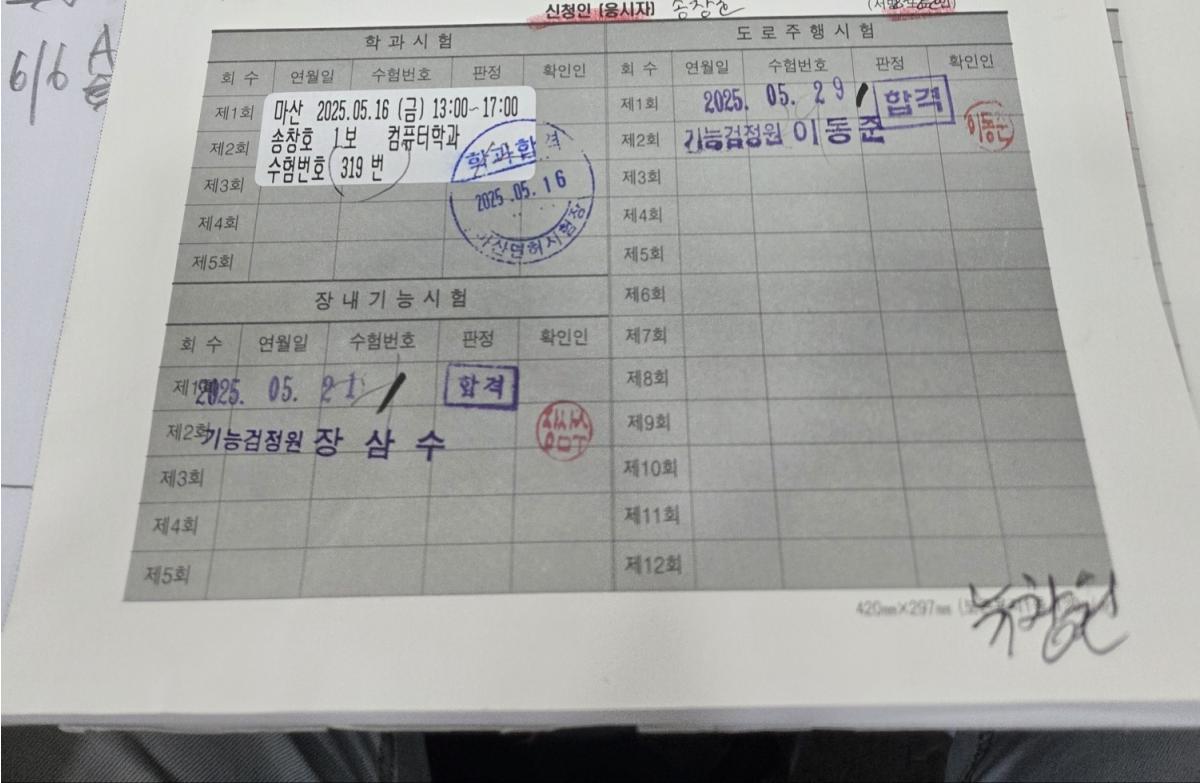 6/6 A
신청인 (응시자) 송창호
학 과 시 험
회 수 연월일 수험번호 판정 확인인
제1회
마산 2025.05.16 (금) 13:00~17:00
송창호 1보 컴퓨터학과
수험번호 319 번
제2회
제3회
제4회
제5회
학과합격
2025.05.16
마산면허시험장
장 내 기 능 시 험
회 수 연월일 수험번호 판정 확인인
제1회 2025. 05. 21 합격
제2회 기능검정원 장 삼 수
제3회
제4회
제5회
도 로 주 행 시 험
회 수 연월일 수험번호 판정 확인인
제1회 2025. 05. 29 합격
제2회 기능검정원 이 동 준
제3회
제4회
제5회
제6회
제7회
제8회
제9회
제10회
제11회
제12회
420㎜×297㎜